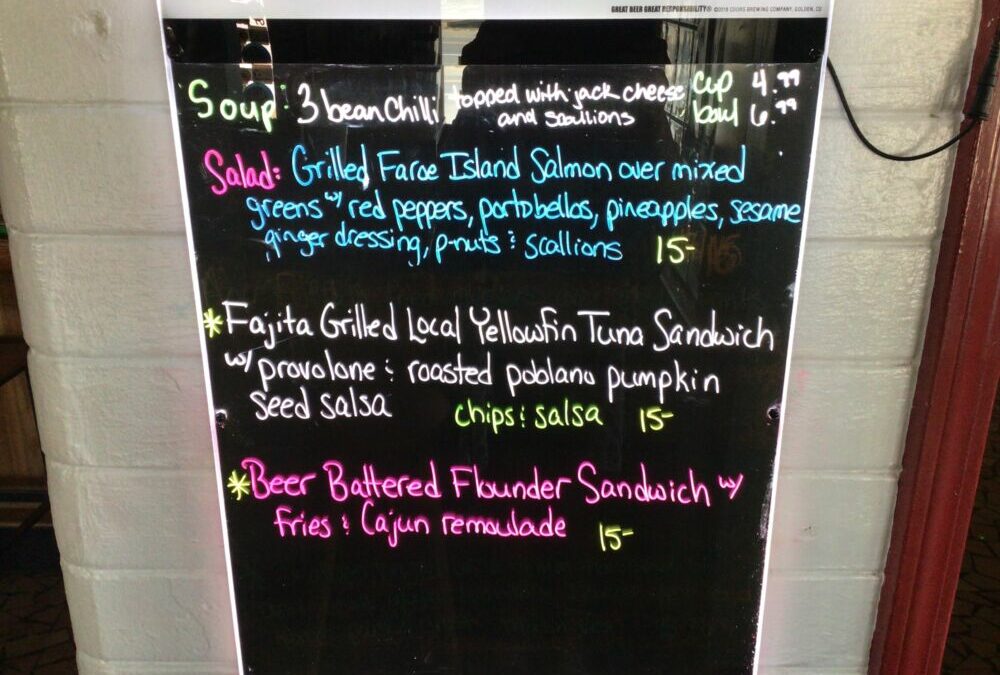 GREAT BEER GREAT RESPONSIBILITY® ©2018 COORS BREWING COMPANY, GOLDEN, CO
Soup: 3 bean Chilli topped with jack cheese and scallions cup 4.99 bowl 6.99
Salad: Grilled Faroe Island Salmon over mixed
greens w/ red peppers, portobellos, pineapples, sesame
ginger dressing, p-nuts & scallions 15-
*Fajita Grilled Local Yellowfin Tuna Sandwich
w/ provolone & roasted poblano pumpkin
seed salsa chips & salsa 15-
*Beer Battered Flounder Sandwich w/
fries & Cajun remoulade 15-